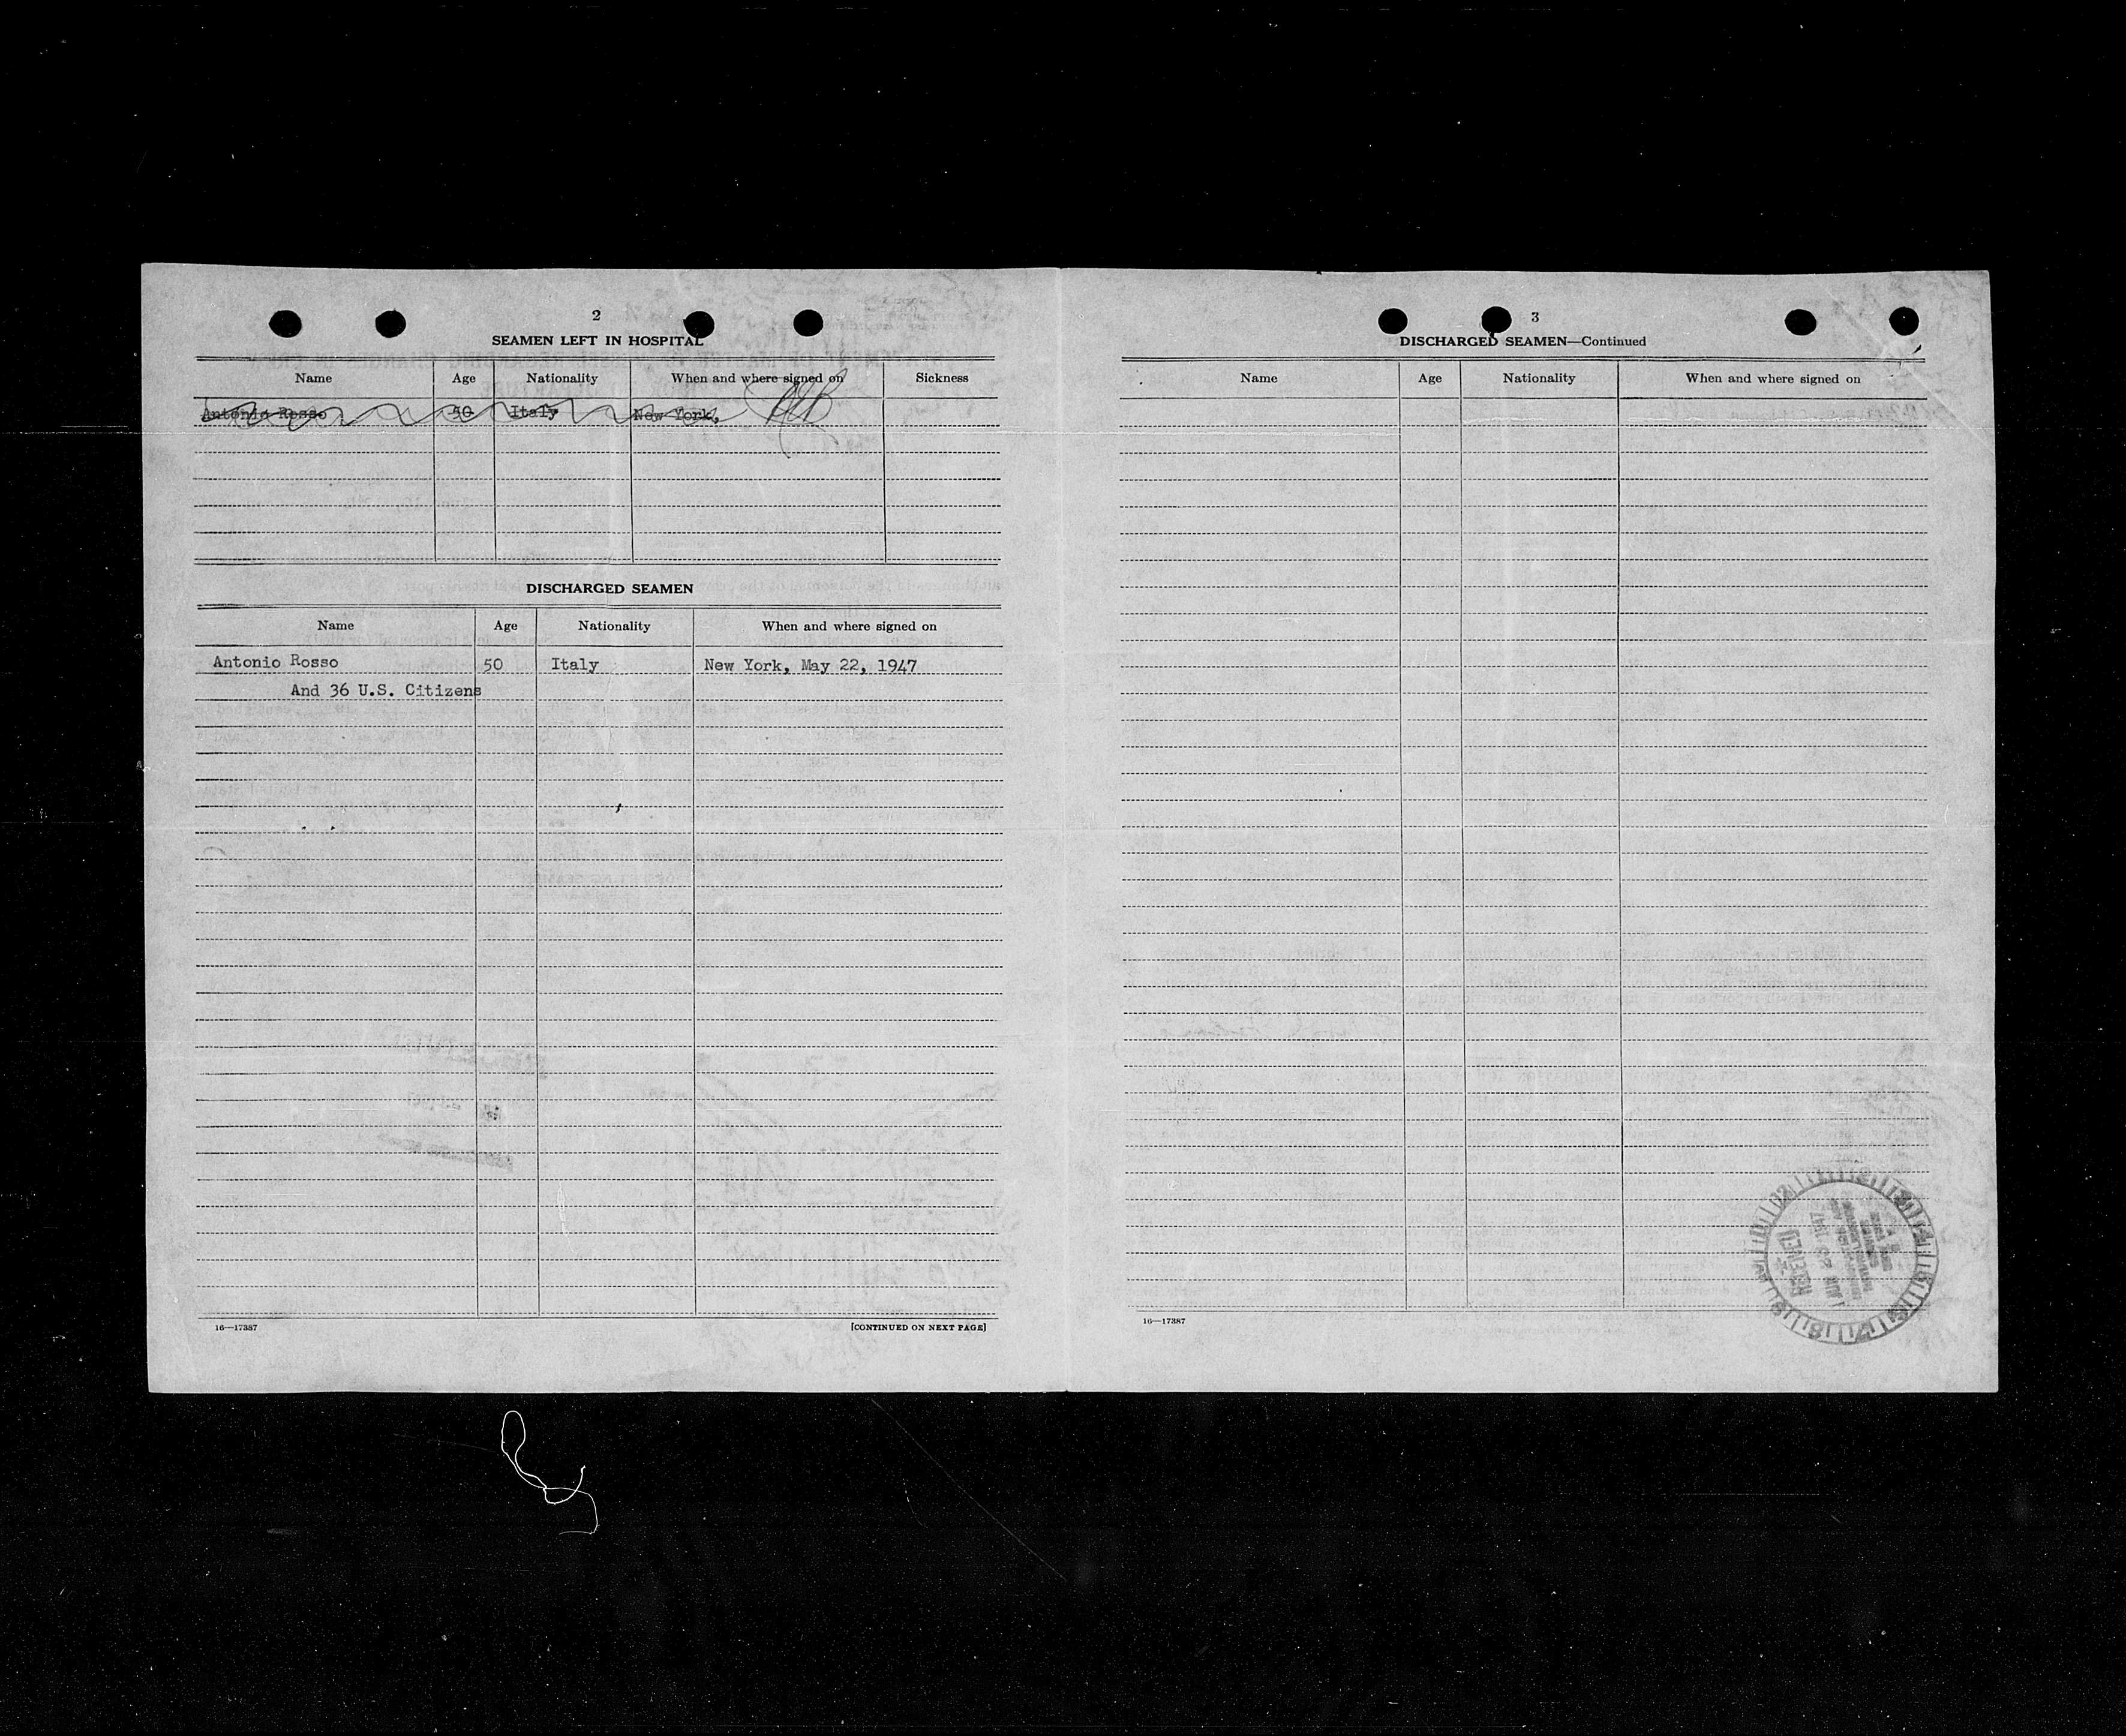 2
SEAMEN LEFT IN HOSPITAL
Name Age Nationality When and where signed on Sickness
Antonio Rosso 50 Italy New York,
DISCHARGED SEAMEN
Name Age Nationality When and where signed on
Antonio Rosso 50 Italy New York, May 22, 1947
And 36 U.S. Citizens
16—17387 [CONTINUED ON NEXT PAGE]
3
DISCHARGED SEAMEN—Continued
Name Age Nationality When and where signed on
16—17387
RECEIVED